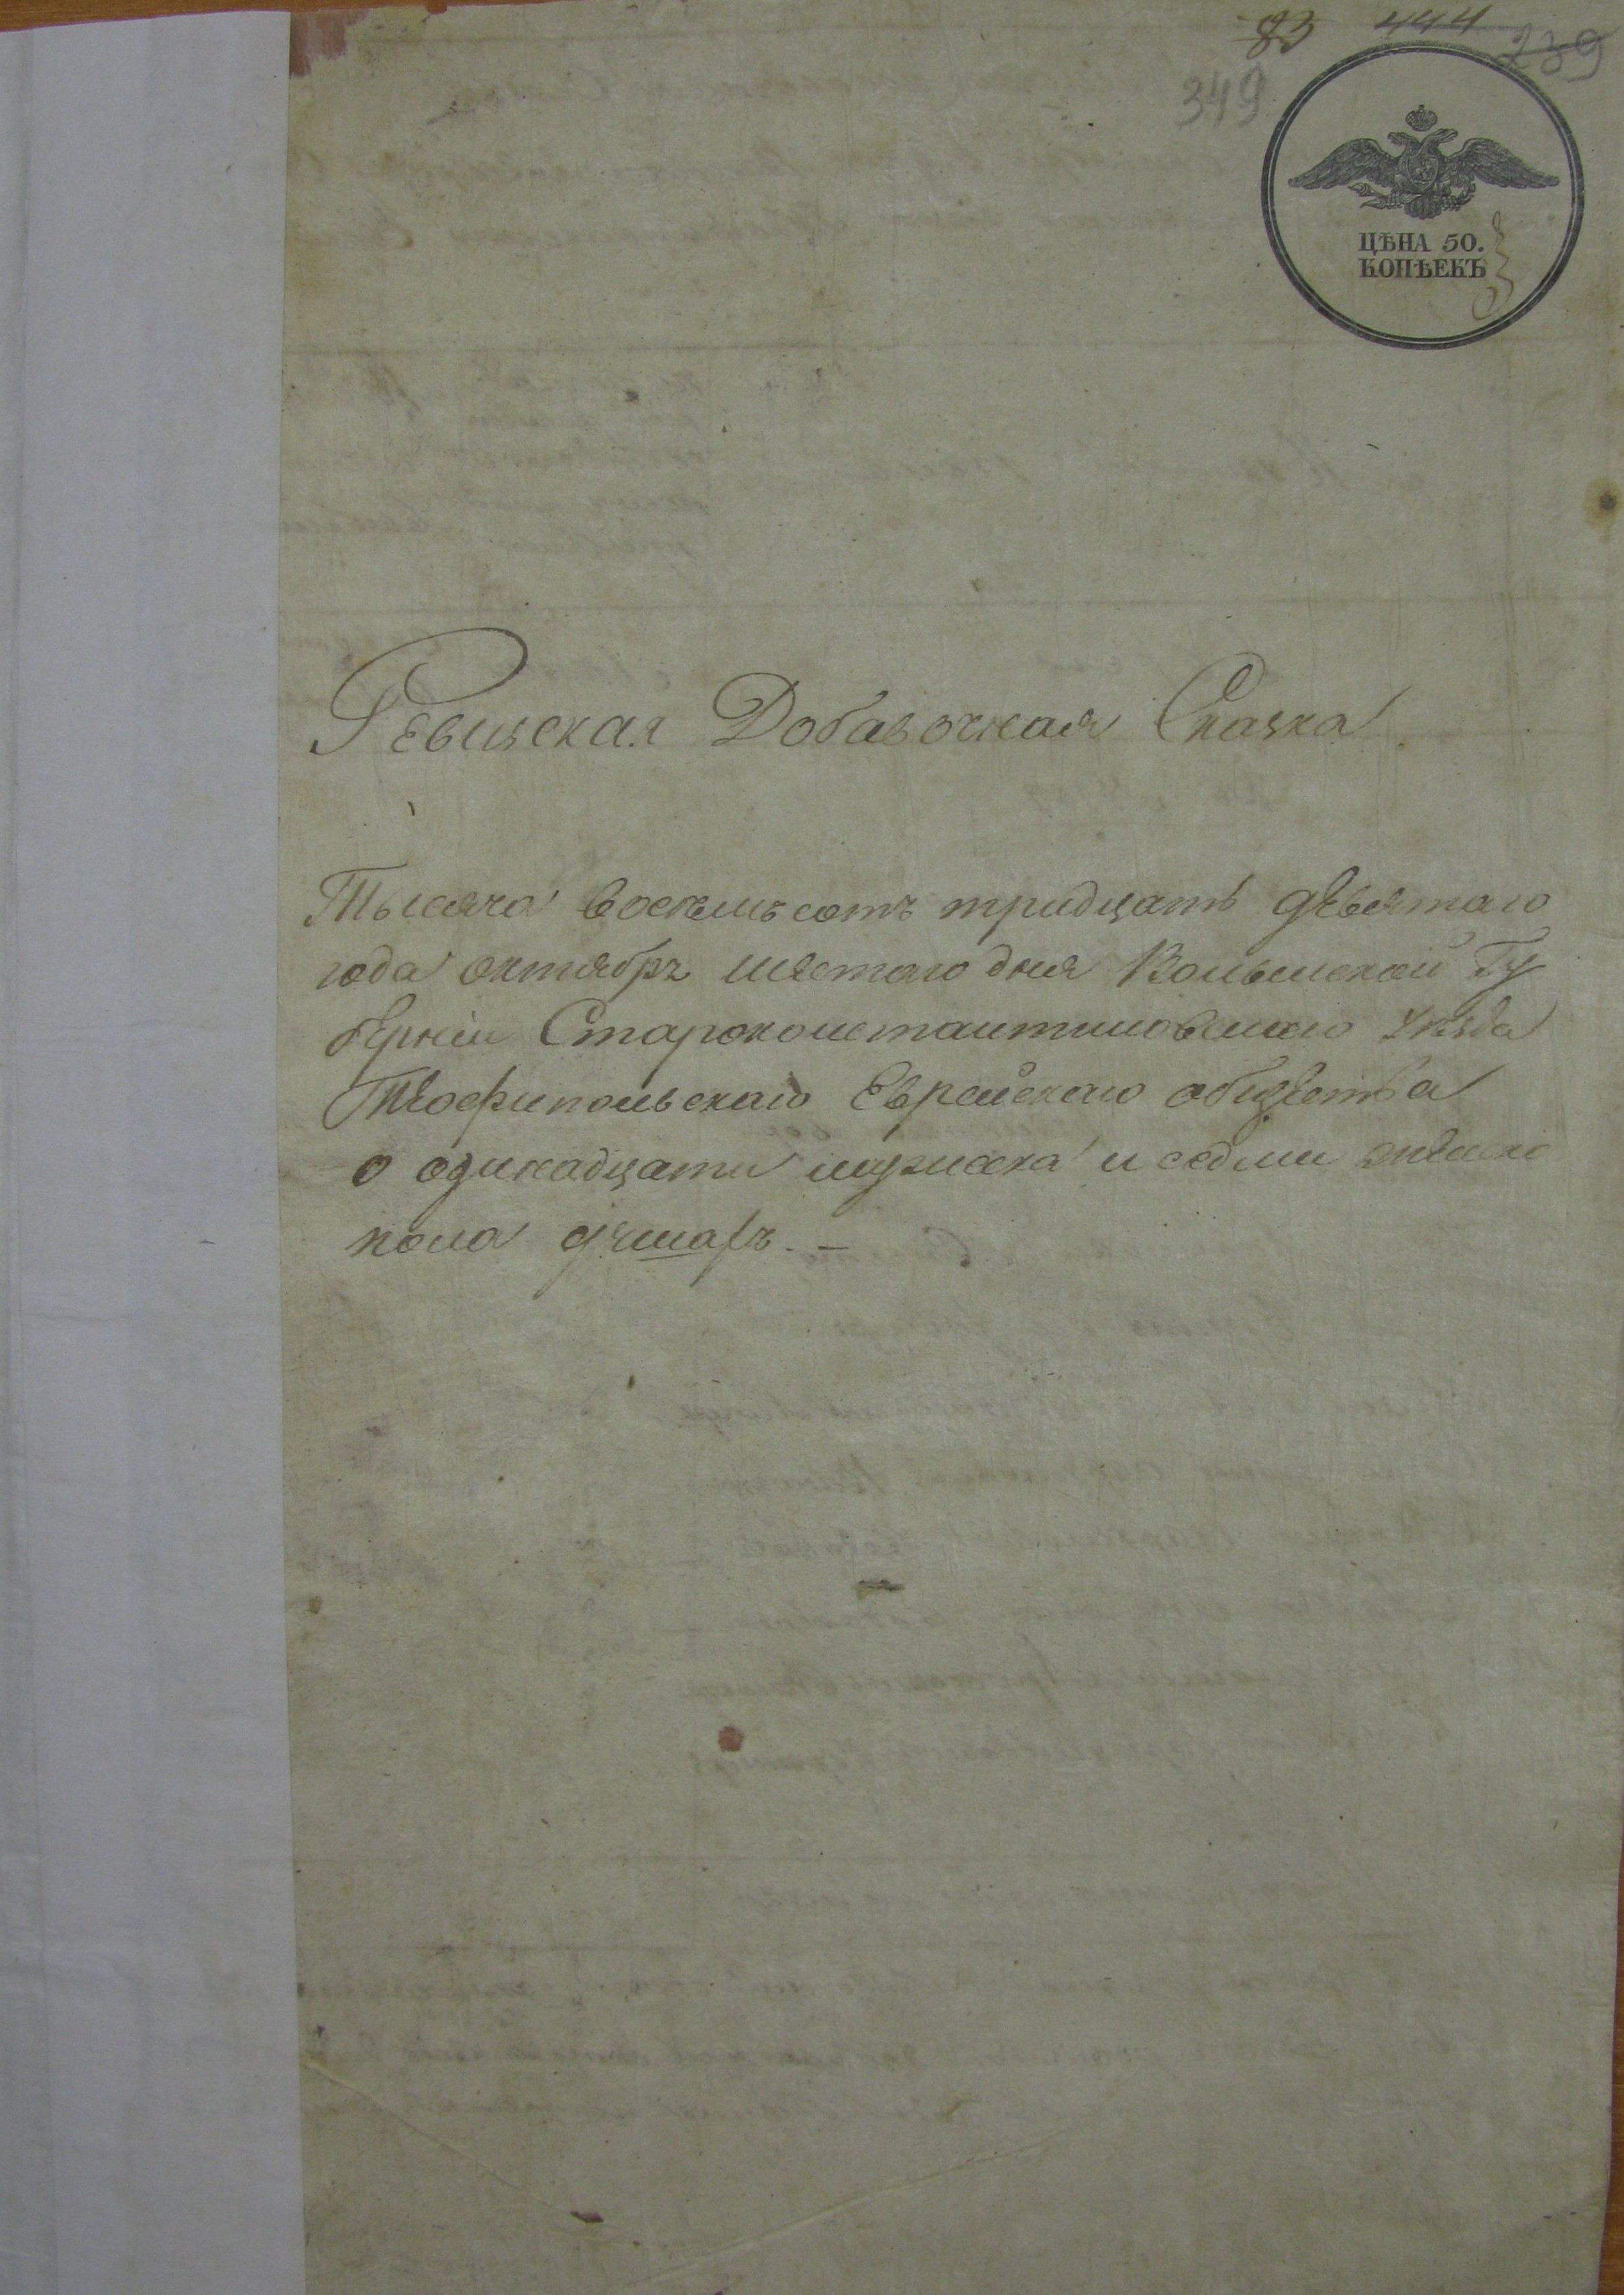 83 444 239
349
ЦѢНА 50.
КОПѢЕКЪ
Ревизская Добавочная Сказка
Тысяча восемьсотъ тридцать девятаго
года октября шестаго дня Волынской Гу
берніи Староконстантиновскаго уѣзда
Теофипольскаго Еврейскаго общества
о одинадцати мужеска и седми женско
пола душахъ. –